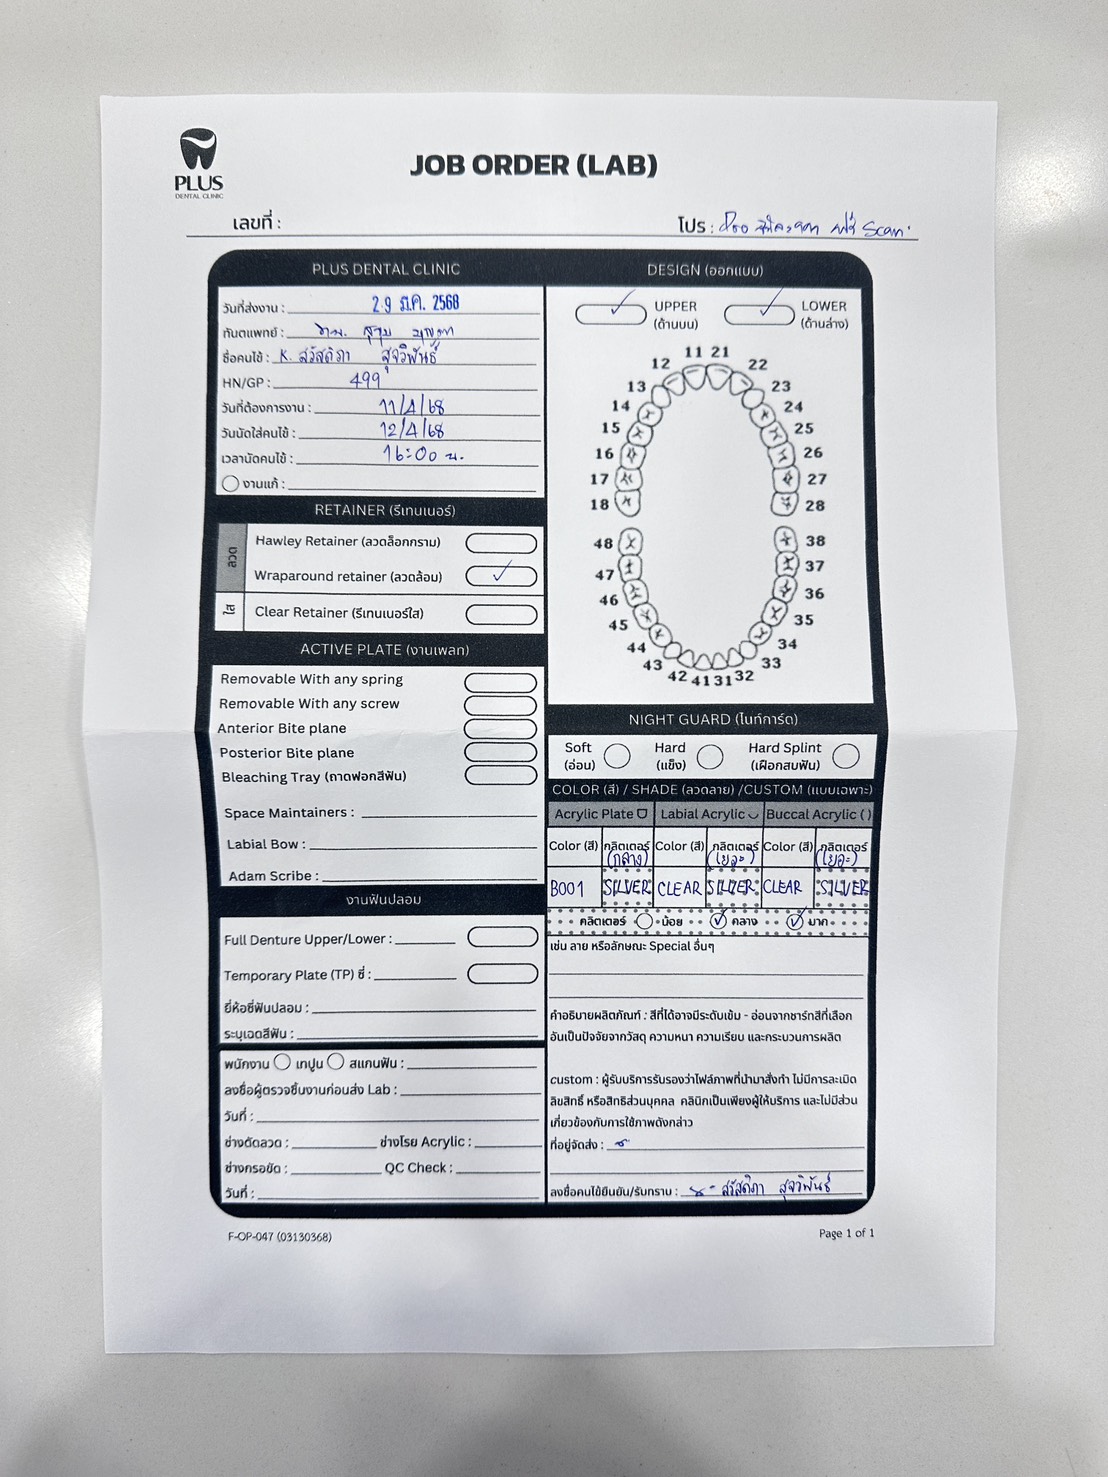 PLUS
DENTAL CLINIC
JOB ORDER (LAB)
เลขที่ :
โปร : Scan
PLUS DENTAL CLINIC
วันที่ส่งงาน : 29 มี.ค. 2568
ทันตแพทย์ :
ชื่อคนไข้ : K. สวัสดิภา สุจวิพันธ์
HN/GP : 499
วันที่ต้องการงาน : 11/4/68
วันนัดใส่คนไข้ : 12/4/68
เวลานัดคนไข้ : 16:00 น.
งานแก้ :
RETAINER (รีเทนเนอร์)
ลวด
Hawley Retainer (ลวดล็อกกราม)
Wraparound retainer (ลวดล้อม) ✓
ใส
Clear Retainer (รีเทนเนอร์ใส)
ACTIVE PLATE (งานเพลท)
Removable With any spring
Removable With any screw
Anterior Bite plane
Posterior Bite plane
Bleaching Tray (ถาดฟอกสีฟัน)
Space Maintainers :
Labial Bow :
Adam Scribe :
งานฟันปลอม
Full Denture Upper/Lower :
Temporary Plate (TP) ซี่ :
ยี่ห้อซี่ฟันปลอม :
ระบุเฉดสีฟัน :
พนักงาน เทปูน สแกนฟัน :
ลงชื่อผู้ตรวจชิ้นงานก่อนส่ง Lab :
วันที่ :
ช่างดัดลวด : ช่างโรย Acrylic :
ช่างกรอขัด : QC Check :
วันที่ :
DESIGN (ออกแบบ)
✓ UPPER (ด้านบน) ✓ LOWER (ด้านล่าง)
11 21
12 22
13 23
14 24
15 25
16 26
17 27
18 28
48 38
47 37
46 36
45 35
44 34
43 33
42 41 31 32
NIGHT GUARD (ไนท์การ์ด)
Soft (อ่อน) Hard (แข็ง) Hard Splint (เฝือกสบฟัน)
COLOR (สี) / SHADE (ลวดลาย) /CUSTOM (แบบเฉพาะ)
Acrylic Plate Labial Acrylic Buccal Acrylic ( )
Color (สี) กลิตเตอร์ Color (สี) กลิตเตอร์ Color (สี) กลิตเตอร์
(กลาง) (เยอะ) (เยอะ)
B001 SILVER CLEAR SILVER CLEAR SILVER
กลิตเตอร์ น้อย ✓ กลาง ✓ มาก
เช่น ลาย หรือลักษณะ Special อื่นๆ
คำอธิบายผลิตภัณฑ์ : สีที่ได้อาจมีระดับเข้ม - อ่อนจากชาร์ทสีที่เลือก
อันเป็นปัจจัยจากวัสดุ ความหนา ความเรียบ และกระบวนการผลิต
custom : ผู้รับบริการรับรองว่าไฟล์ภาพที่นำมาสั่งทำ ไม่มีการละเมิด
ลิขสิทธิ์ หรือสิทธิส่วนบุคคล คลินิกเป็นเพียงผู้ให้บริการ และไม่มีส่วน
เกี่ยวข้องกับการใช้ภาพดังกล่าว
ที่อยู่จัดส่ง :
ลงชื่อคนไข้ยืนยัน/รับทราบ : สวัสดิภา สุจวิพันธ์
F-OP-047 (03130368)
Page 1 of 1